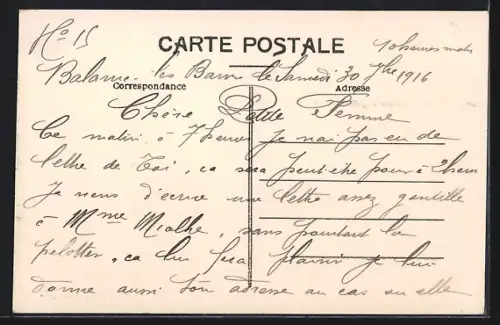 No 15
CARTE POSTALE
10 heures matin
Balaruc les Bains le Samedi 30 7bre 1916
Correspondance
Adresse
Chère Petite Femme
Ce matin à 7 heures je n'ai pas eu de
lettre de Toi, ca sera peut-etre pour à 2 heures
Je viens d'ecrire une lettre assez gentille
à Mme Mialhe, sans pourtant la
peloter, ca lui fera plaisir je lui
donne aussi ton adresse au cas ou elle